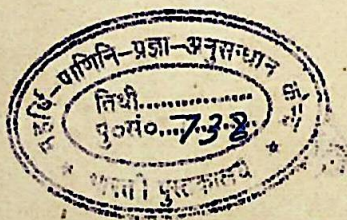 महर्षि-पाणिनि-प्रज्ञा-अनुसन्धान
तिथी..................
पु०सं०....738....
* पुस्तकालय *